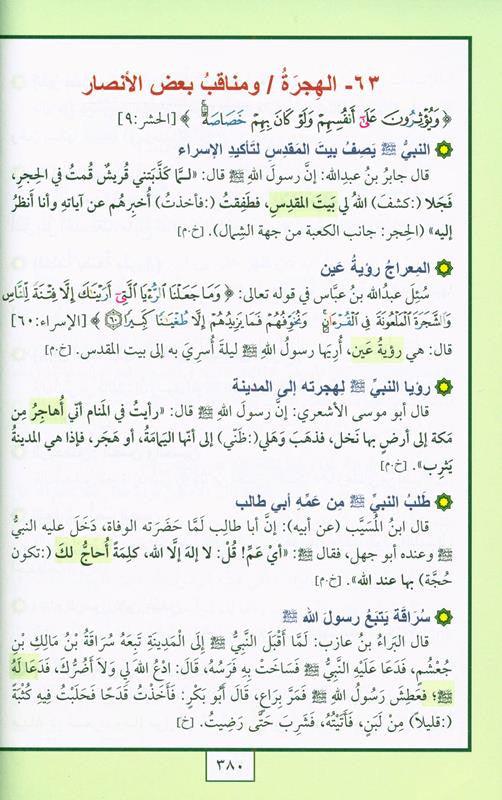 ٦٣- الهِجرَةُ / ومناقبُ بعض الأنصار
﴿ وَيُؤْثِرُونَ عَلَىٰ أَنفُسِهِمْ وَلَوْ كَانَ بِهِمْ خَصَاصَةٌ ﴾ [الحشر:٩]
النبيُّ ﷺ يَصِفُ بيتَ المَقدِسِ لتَأكيدِ الإسراء
قال جابرُ بنُ عبدِالله: إنَّ رسولَ اللهِ ﷺ قال: «لـمَّا كَذَّبَتني قُريشٌ قُمتُ في الحِجرِ،
فَجَلا (:كشفَ) اللهُ لي بَيتَ المقدِسِ، فطَفِقتُ (:فأخذتُ) أُخبِرُهُم عن آياتِهِ وأنا أنظُرُ
إليه» (الحِجر: جانب الكعبة من جهة الشِمال). [خ.م]
المِعراجُ رؤيةُ عَين
سُئِلَ عبدُاللهِ بنُ عبَّاس في قوله تعالى: ﴿ وَمَا جَعَلْنَا الرُّءْيَا الَّتِي أَرَيْنَاكَ إِلَّا فِتْنَةً لِلنَّاسِ
وَالشَّجَرَةَ الْمَلْعُونَةَ فِي الْقُرْءَانِ وَنُخَوِّفُهُمْ فَمَا يَزِيدُهُمْ إِلَّا طُغْيَانًا كَبِيرًا ٦٠ ﴾ [الإسراء:٦٠]
قال: هي رؤيةُ عَين، أُرِيَها رسولُ اللهِ ﷺ ليلةَ أُسرِيَ به إلى بيت المقدس. [خ.م]
رؤيا النبيِّ ﷺ لِهجرته إلى المدينة
قال أبو موسى الأشعري: إنَّ رسولَ اللهِ ﷺ قال: «رأيتُ في المَنام أنّي أُهاجِرُ مِن
مَكة إلى أرضٍ بها نَخل، فذهَبَ وَهَلي(:ظَنّي) إلى أنّها اليَمامَةُ، أو هَجَر، فإذا هي المدينةُ
يَثرِب». [خ.م]
طَلَبُ النبيِّ ﷺ مِن عَمِّهِ أبي طالب
قال ابنُ المُسَيَّب (عن أبيه): إنَّ أبا طالِب لَمَّا حَضَرَته الوفاة، دَخَلَ عليه النبيُّ
ﷺ وعنده أبو جهل، فقال ﷺ: «أيْ عَمِّ! قُلْ: لا إلهَ إلَّا الله، كلِمَةً أُحاجُّ لكَ (:تكون
حُجَّة) بها عند الله». [خ.م]
سُرَاقَة يَتبَعُ رسولَ الله ﷺ
قال البَراءُ بنُ عازِب: لَمَّا أَقْبَلَ النَّبِيُّ ﷺ إِلَى الْمَدِينَةِ تَبِعَهُ سُرَاقَةُ بْنُ مَالِكِ بْنِ
جُعْشُمٍ، فَدَعَا عَلَيْهِ النَّبِيُّ ﷺ فَسَاخَتْ بِهِ فَرَسُهُ، قَالَ: ادْعُ اللهَ لِي وَلَا أَضُرُّكَ، فَدَعَا لَهُ
ﷺ؛ فَعَطِشَ رَسُولُ اللهِ ﷺ فَمَرَّ بِرَاعٍ، قَالَ أَبُو بَكْرٍ: فَأَخَذْتُ قَدَحًا فَحَلَبْتُ فِيهِ كُثْبَةً
(:قليلاً) مِنْ لَبَنٍ، فَأَتَيْتُهُ، فَشَرِبَ حَتَّى رَضِيتُ. [خ]
٣٨٠